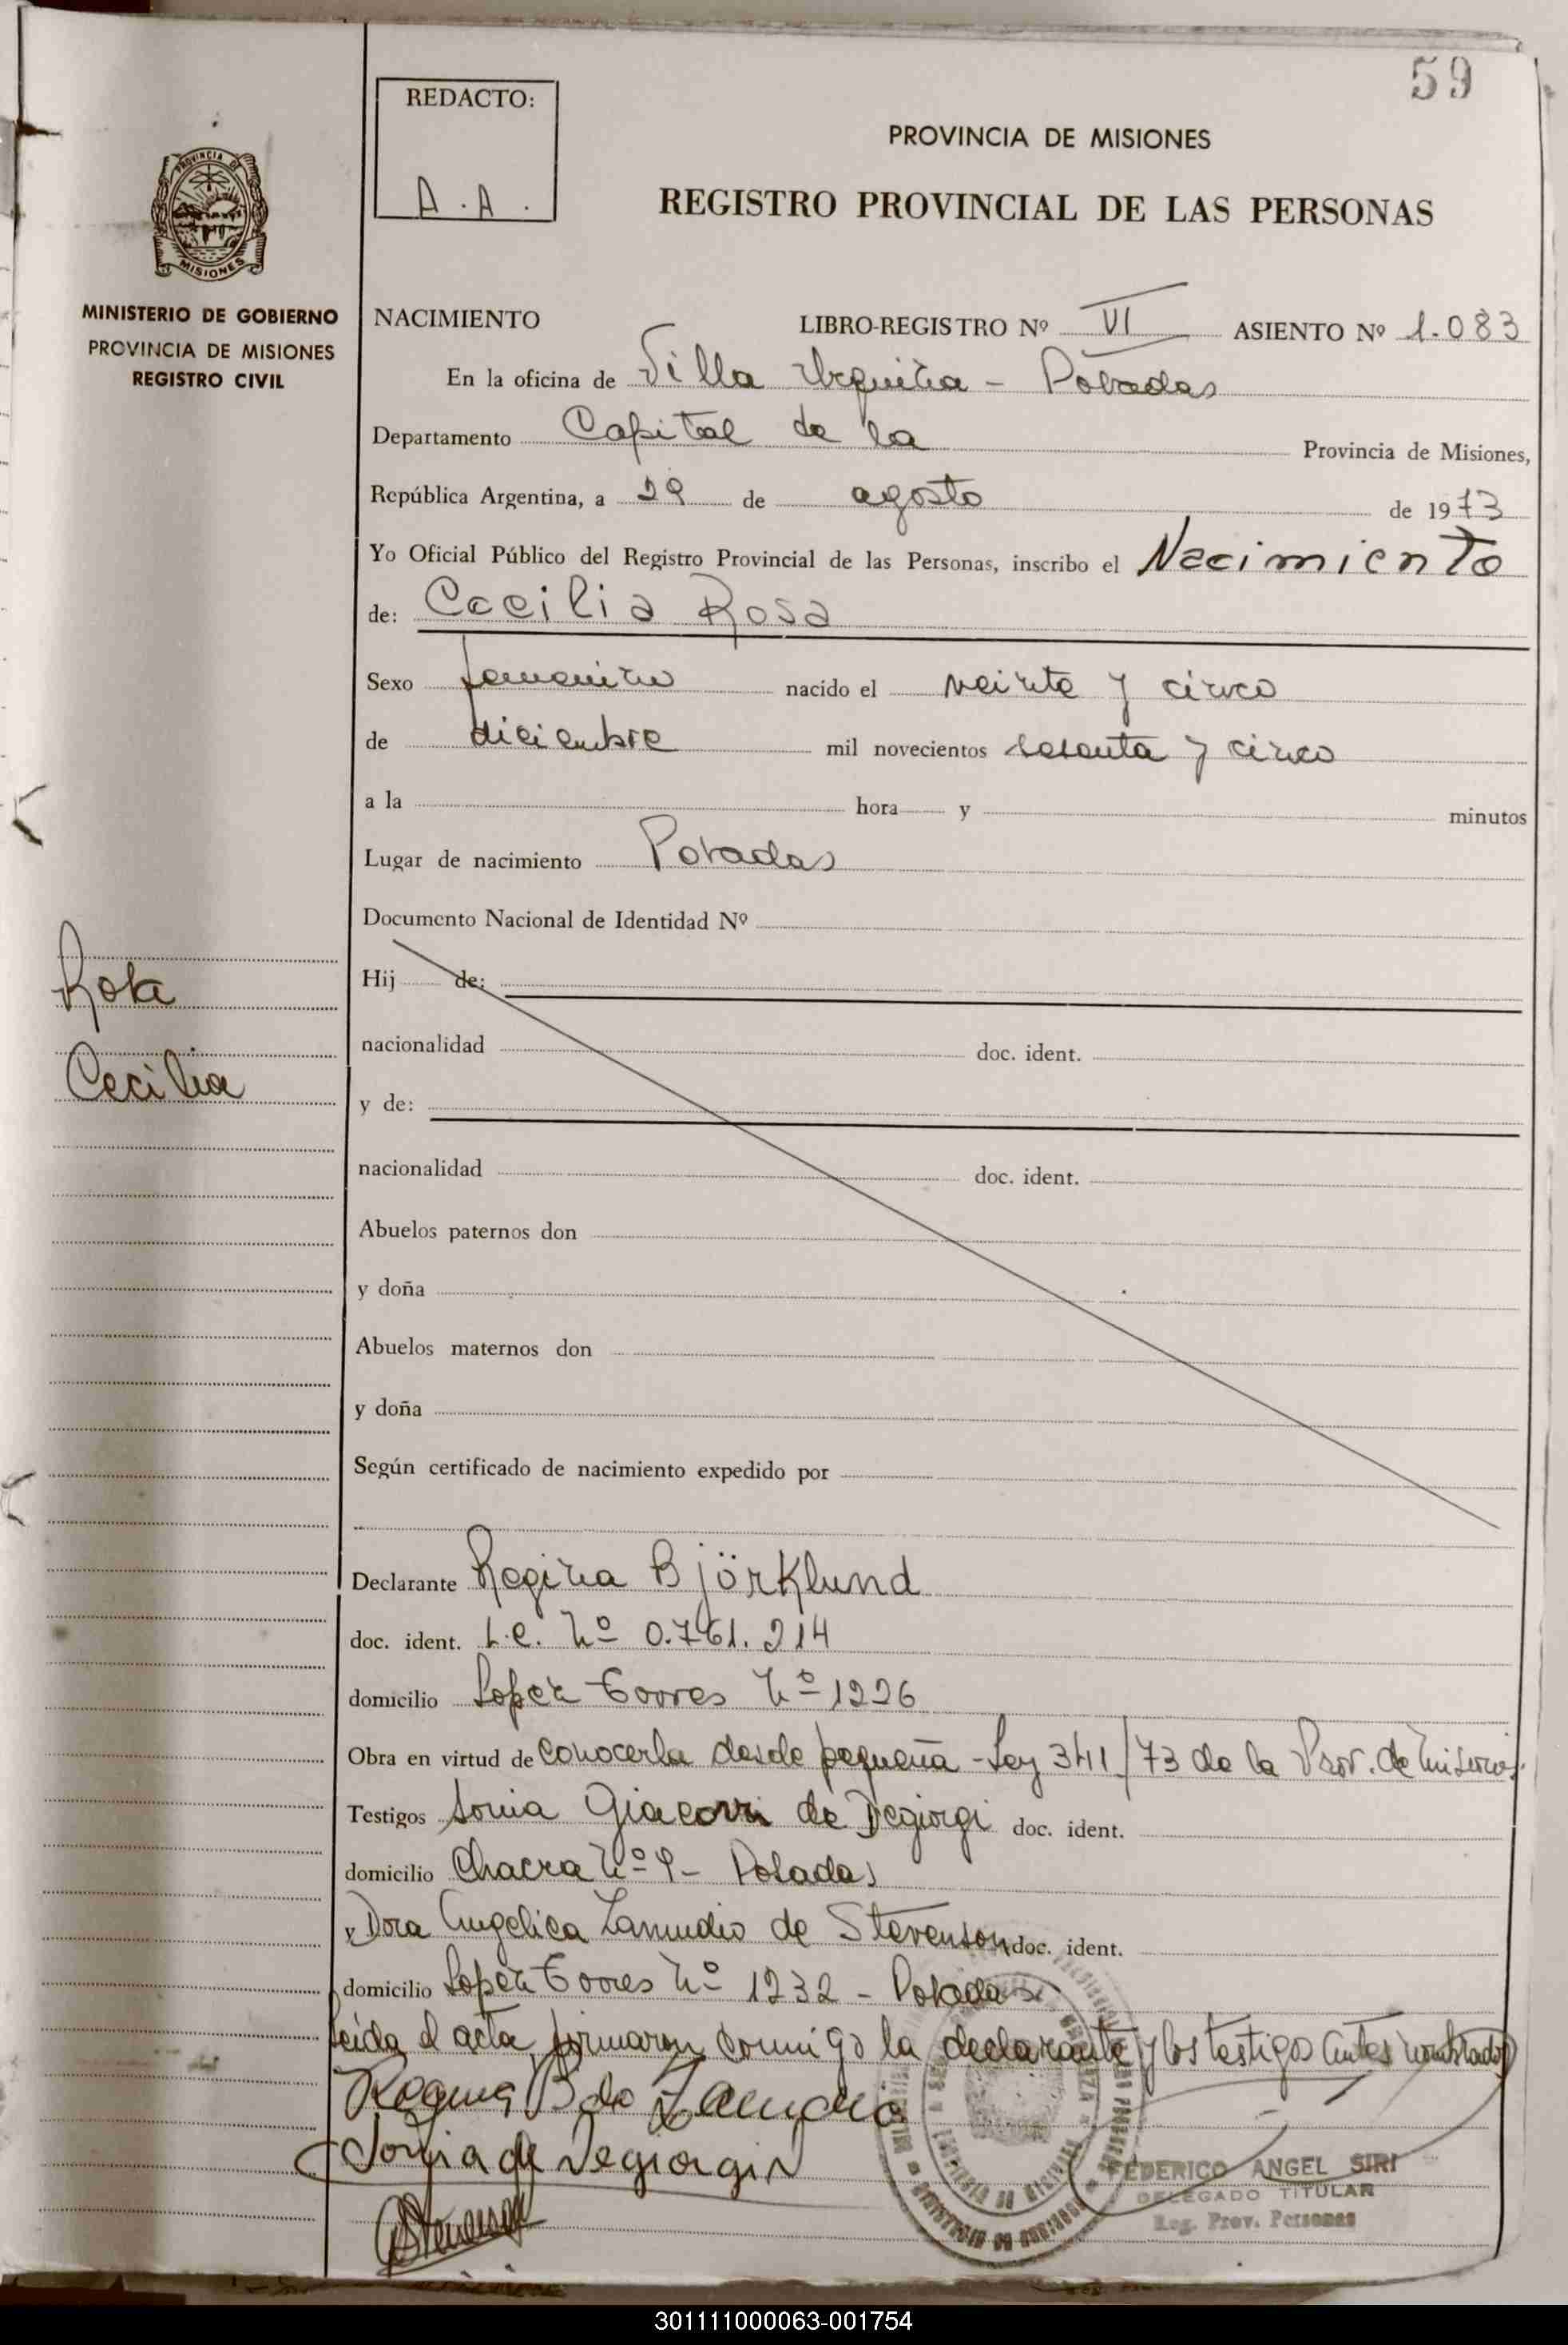 59
REDACTO:
A.A.
PROVINCIA DE MISIONES
REGISTRO PROVINCIAL DE LAS PERSONAS
PROVINCIA DE
MISIONES
MINISTERIO DE GOBIERNO
PROVINCIA DE MISIONES
REGISTRO CIVIL
NACIMIENTO LIBRO-REGISTRO Nº VI ASIENTO Nº 1.083
En la oficina de Villa Urquiza - Posadas
Departamento Capital de la Provincia de Misiones,
República Argentina, a 29 de agosto de 1973
Yo Oficial Público del Registro Provincial de las Personas, inscribo el Nacimiento
de: Cecilia Rosa
Sexo femenino nacido el veinte y cinco
de diciembre mil novecientos sesenta y cinco
a la hora y minutos
Lugar de nacimiento Posadas
Documento Nacional de Identidad Nº
Rosa
Cecilia
Hij de:
nacionalidad doc. ident.
y de:
nacionalidad doc. ident.
Abuelos paternos don
y doña
Abuelos maternos don
y doña
Según certificado de nacimiento expedido por
Declarante Regina Björklund
doc. ident. L.C. Nº 0.761.214
domicilio Lopez Torres Nº 1226
Obra en virtud de conocerla desde pequeña - Ley 341/73 de la Prov. de Misiones.
Testigos Sonia Giacorri de Degiorgi doc. ident.
domicilio Chacra Nº 9 - Posadas
y Dora Angelica Zamudio de Stevenson doc. ident.
domicilio Lopez Torres Nº 1232 - Posadas.
Leida el acta, firmaron conmigo la declarante y los testigos antes nombrados
Regina B de Zamudio
Sonia de Degiorgi
Stevenson
FEDERICO ANGEL SIRI
DELEGADO TITULAR
Reg. Prov. Personas
301111000063-001754